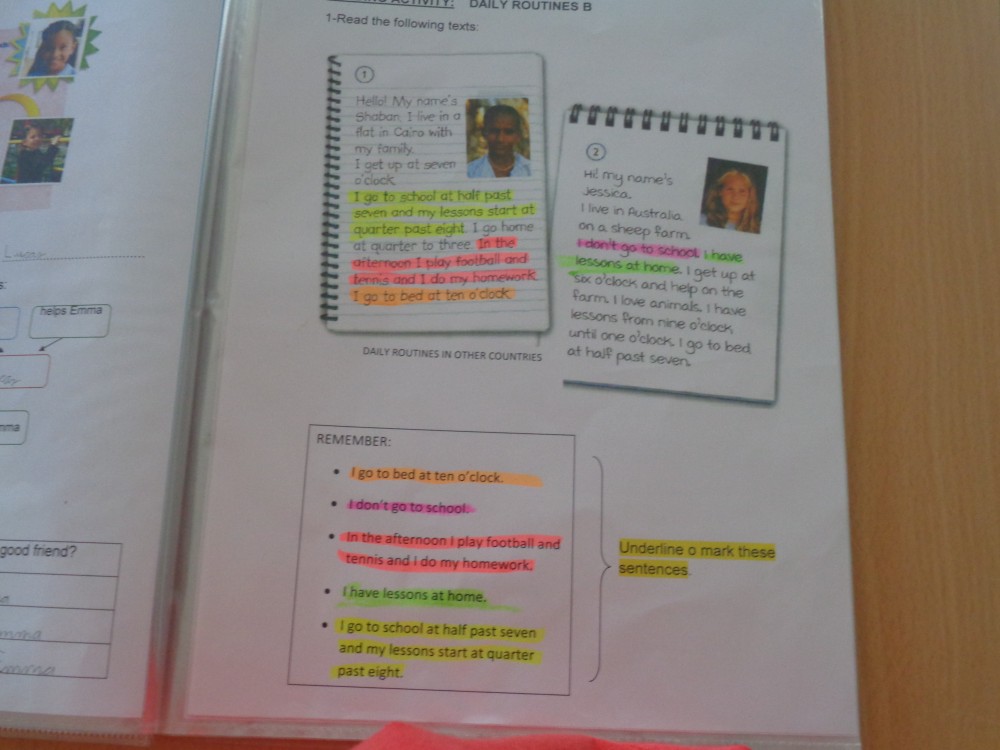 ACTIVITY: DAILY ROUTINES B
1-Read the following texts:
1
Hello! My name's
Shaban. I live in a
flat in Cairo with
my family.
I get up at seven
o'clock.
I go to school at half past
seven and my lessons start at
quarter past eight. I go home
at quarter to three. In the
afternoon I play football and
tennis and I do my homework.
I go to bed at ten o'clock.
2
Hi! my name's
Jessica.
I live in Australia
on a sheep farm.
I don't go to school. I have
lessons at home. I get up at
six o'clock and help on the
farm. I love animals. I have
lessons from nine o'clock
until one o'clock. I go to bed
at half past seven.
DAILY ROUTINES IN OTHER COUNTRIES
REMEMBER:
• I go to bed at ten o'clock.
• I don't go to school.
• In the afternoon I play football and
tennis and I do my homework.
• I have lessons at home.
• I go to school at half past seven
and my lessons start at quarter
past eight.
Underline o mark these
sentences.
helps Emma
good friend?